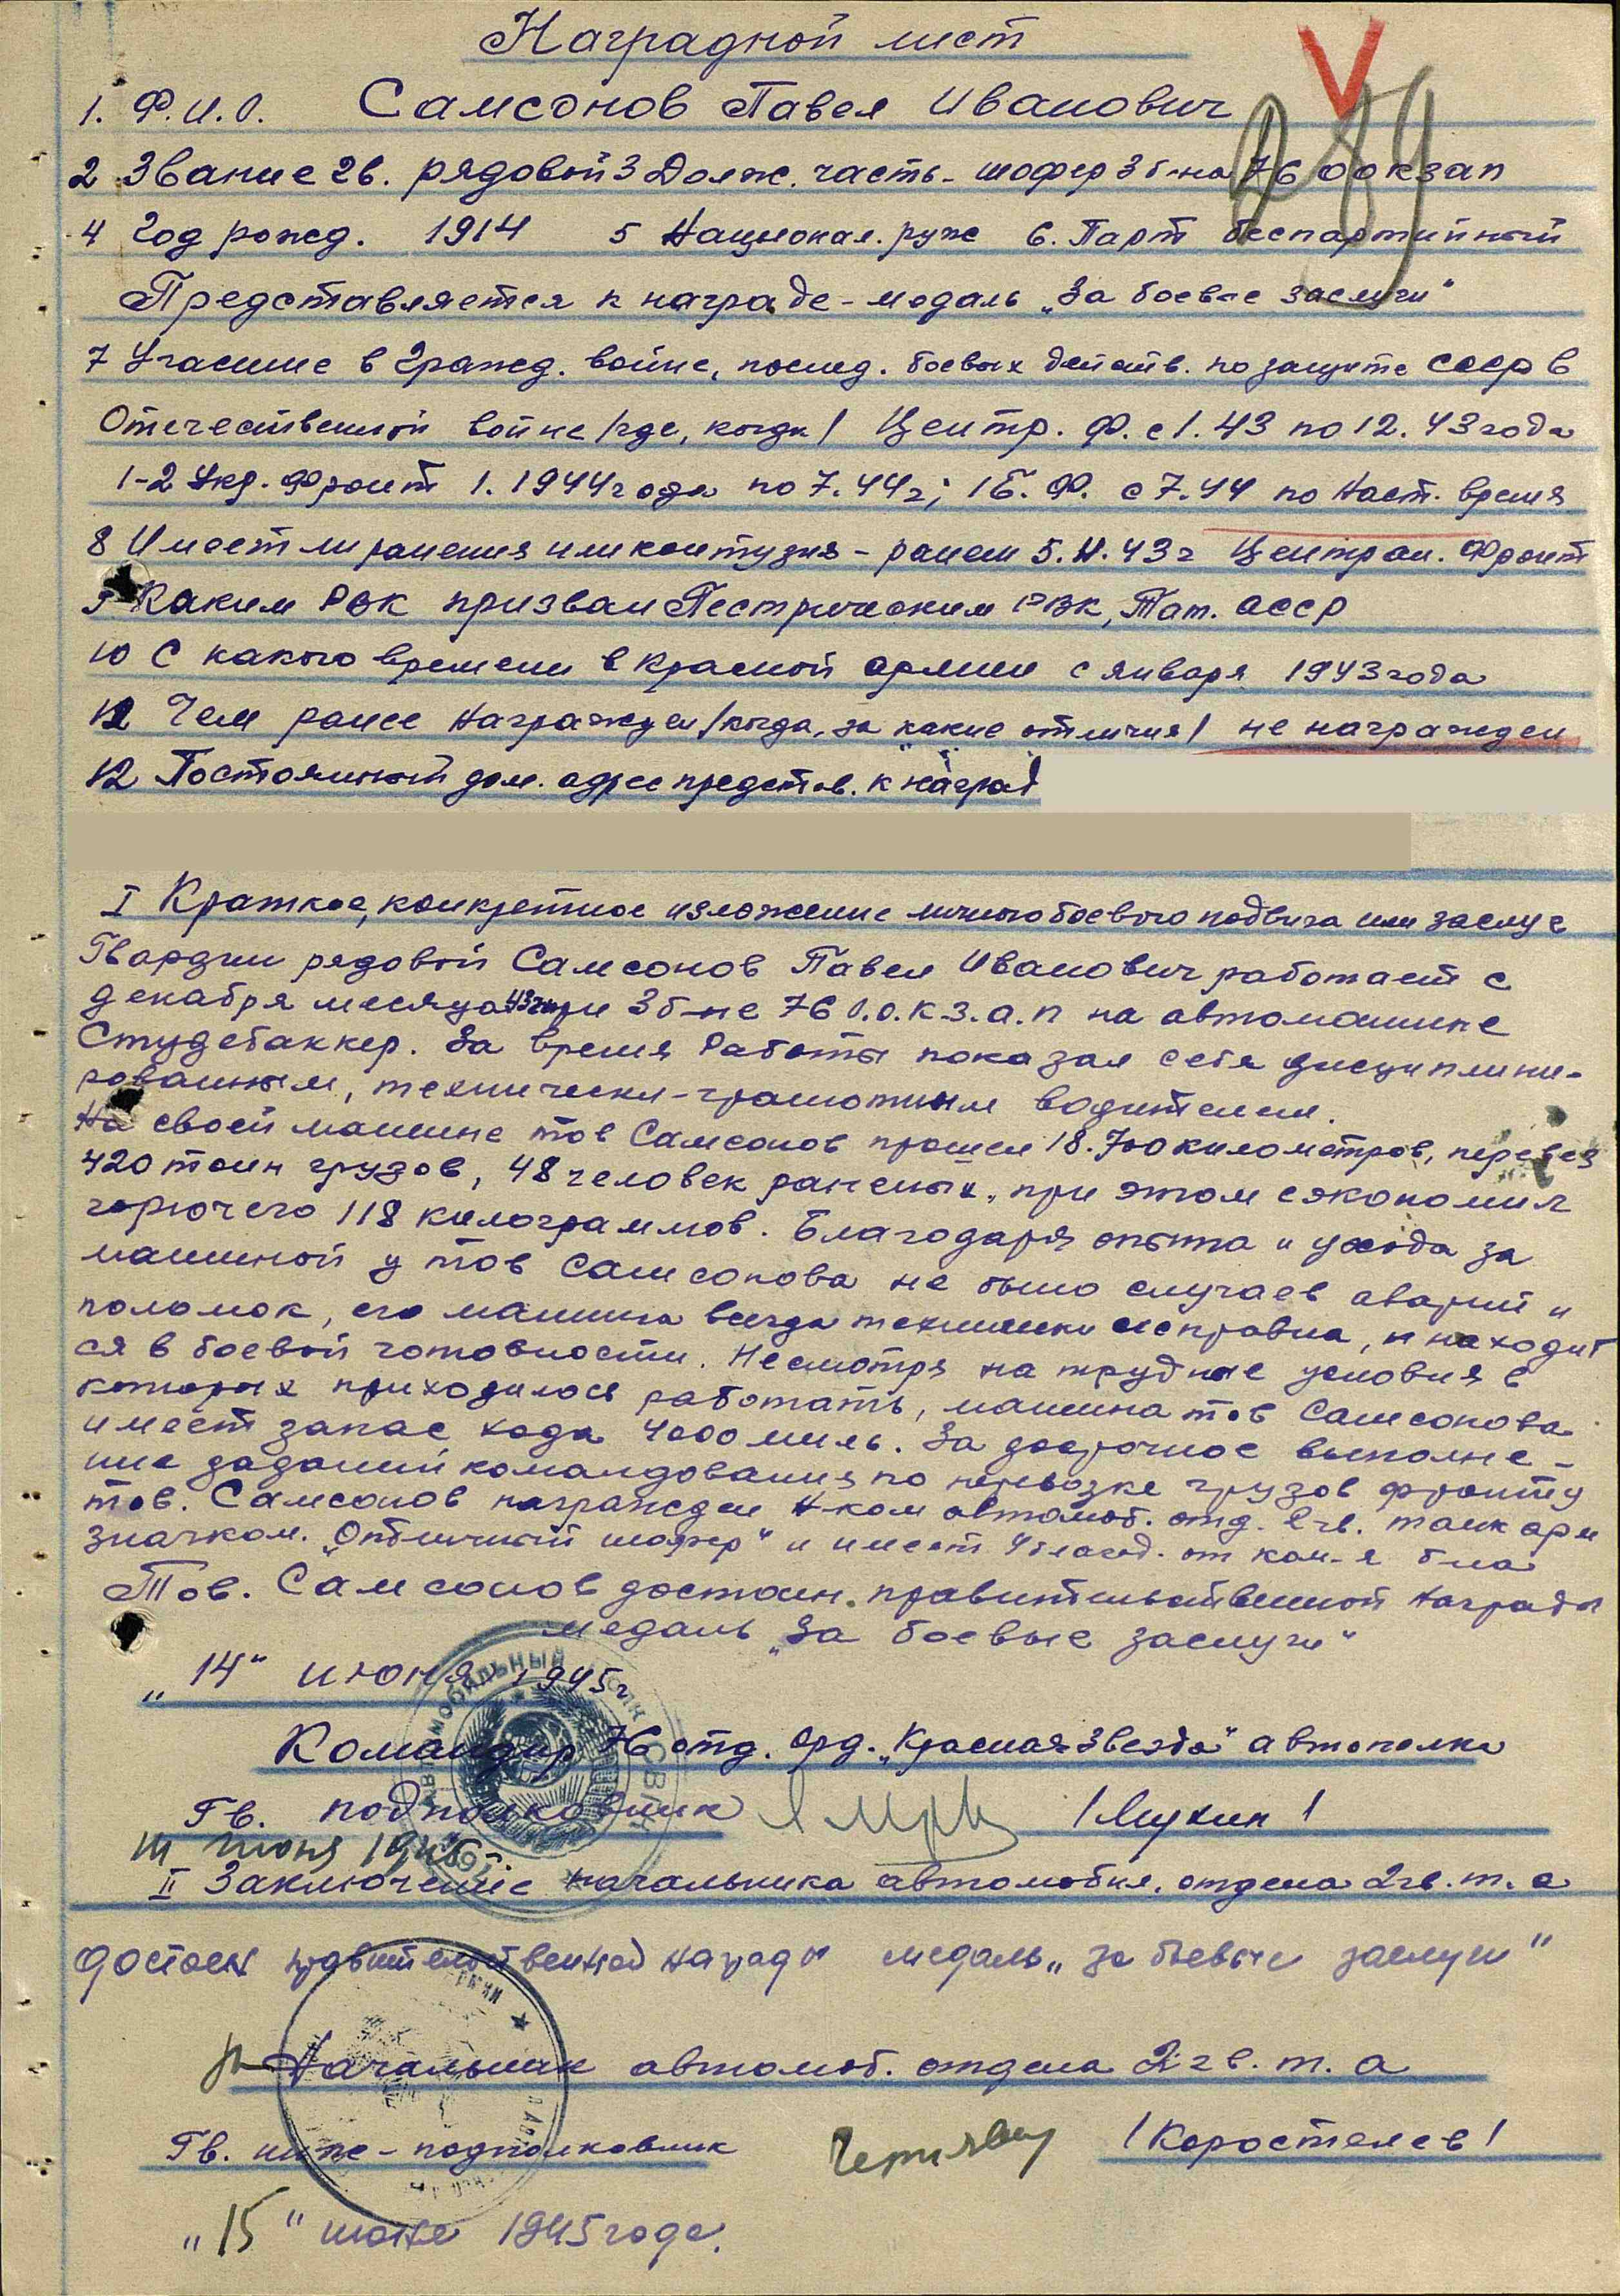 Наградной лист
1. Ф.И.О. Самсонов Павел Иванович
2 Звание гв. рядовой 3 Долж. часть - шофер 3 б-на 76 оокзап
4 Год рожд. 1914 5 Национал. русс 6. Парт беспартийный
Представляется к награде - медаль „За боевые заслуги"
7 Участие в гражд. войне, послед. боевых действ. по защите СССР в
Отечественной войне /где, когда/ Центр. Ф. с 1.43 по 12.43 года
1-2 Укр. Фронт 1.1944 года по 7.44г; 1Б.Ф. с 7.44 по наст. время
8 Имеет ли ранения или контузия - ранен 5. 43г Централ. Фронт
9 Каким РВК призван Пестрическим РВК, Тат. АССР
10 С какого времени в Красной армии с января 1943 года
12 Чем ранее награжден /когда, за какие отличия/ не награжден
12 Постоянный дом. адрес представ. к награ
I Краткое, конкретное изложение личного боевого подвига или заслуг
Гвардии рядовой Самсонов Павел Иванович работает с
декабря месяца 43г при 3 б-не 76 О.о.к.з.а.п на автомашине
Студебаккер. За время работы показал себя дисциплини-
рованным, технически-грамотным водителем.
На своей машине тов Самсонов прошел 18.700 километров, перевез
420 тонн грузов, 48 человек раненых, при этом сэкономил
горючего 118 килограммов. Благодаря опыта и ухода за
машиной у тов Самсонова не было случаев аварий и
поломок, его машина всегда технически исправна, и находит
ся в боевой готовности. Несмотря на трудные условия в
которых приходилося работать, машина тов Самсонова
имеет запас хода 4000 миль. За досрочное выполне-
ние заданий командования по перевозке грузов фронту
тов. Самсонов награжден н-ком автомоб. отд. 2 гв. танк арм
значком „Отличный шофер" и имеет 4 благод. от ком-я б-на
Тов. Самсонов достоин правительственной награды
медаль „За боевые заслуги"
„14" июня 1945г
Командир 76 отд. орд. „Красная Звезда" автополка
Гв. подполковник /Лукин/
14 июня 1945 г.
II Заключение начальника автомобил. отдела 2 гв. т. а
достоен правительственной награды медаль „за боевые заслуги"
Начальник автомоб. отдела 2 гв. т. а
Гв. инж - подполковник /Коростелев/
„15" июня 1945 года.